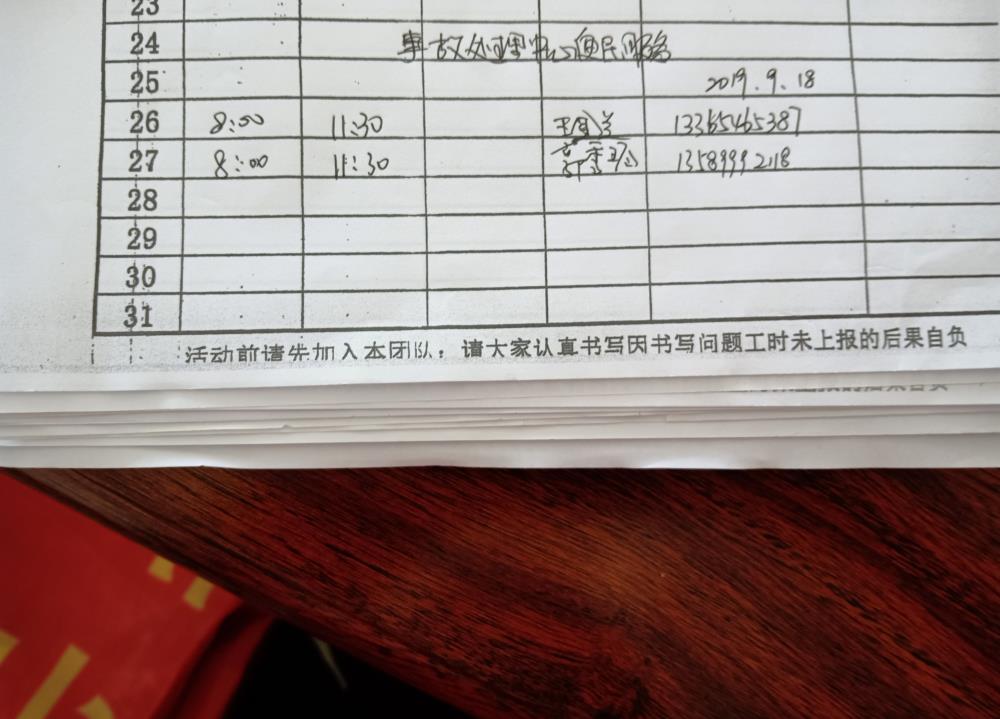 23
24 事故处理中心便民服务
25 2019.9.18
26 8:00 11:30 13365465387
27 8:00 11:30 13589992118
28
29
30
31
活动前请先加入本团队: 请大家认真书写因书写问题工时未上报的后果自负